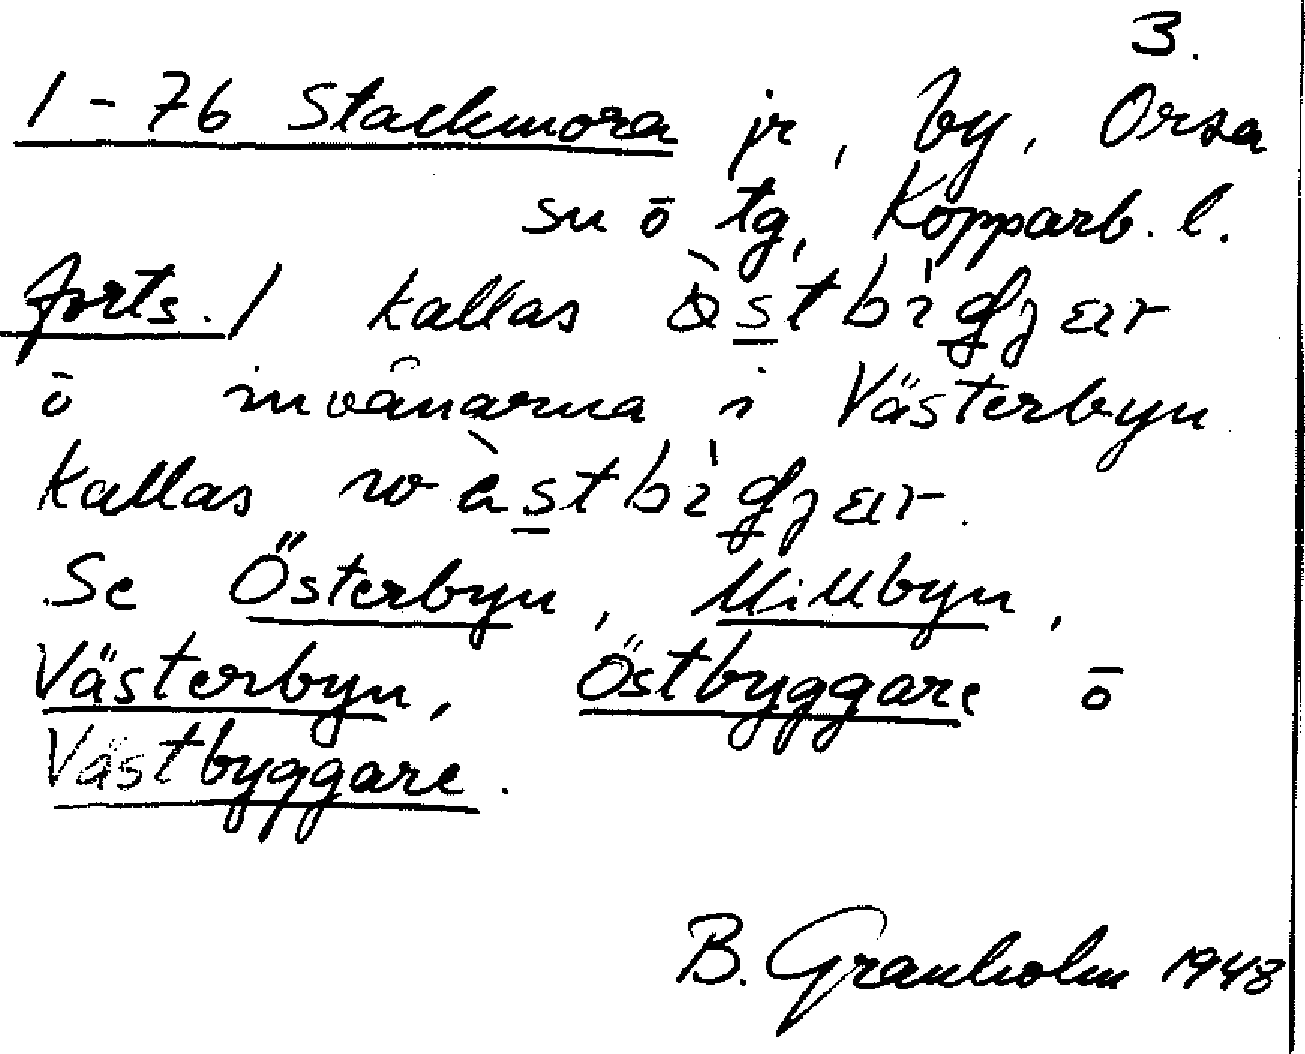 3.
1-76 Stackmora jr, by, Orsa
sn ō tg, Kopparb. l.
forts./ kallas
ō invånarna i Västerbyn
kallas
Se Österbyn, Millbyn,
Västerbyn, Östbyggare ō
Västbyggare.
B. Granholm 1948